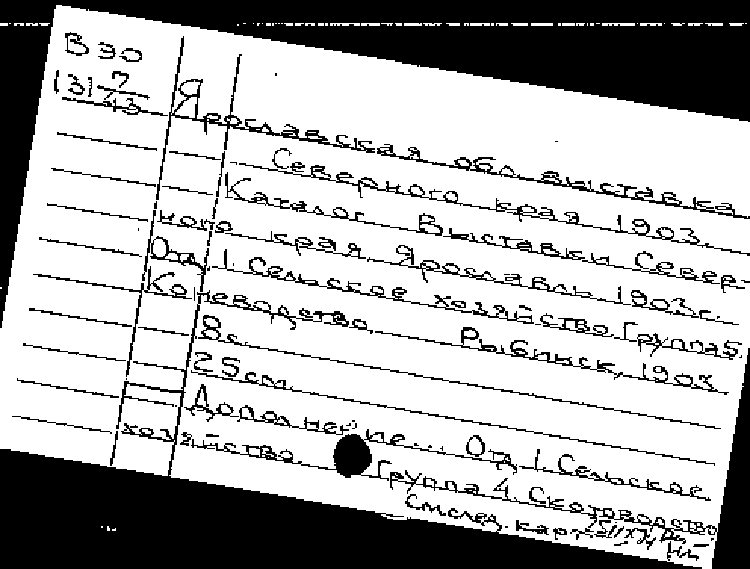 ВЭО
131 7/43
Ярославская обл. выставка
Северного края 1903.
Каталог Выставки Север-
ного края. Ярославль 1903г.
Отд. 1. Сельское хозяйство. Группа 5.
Коневодство. Рыбинск, 1903.
8 с.
25 см.
Дополнение... Отд. 1. Сельское
хозяйство. Группа 4. Скотоводство.
См. след. карт.